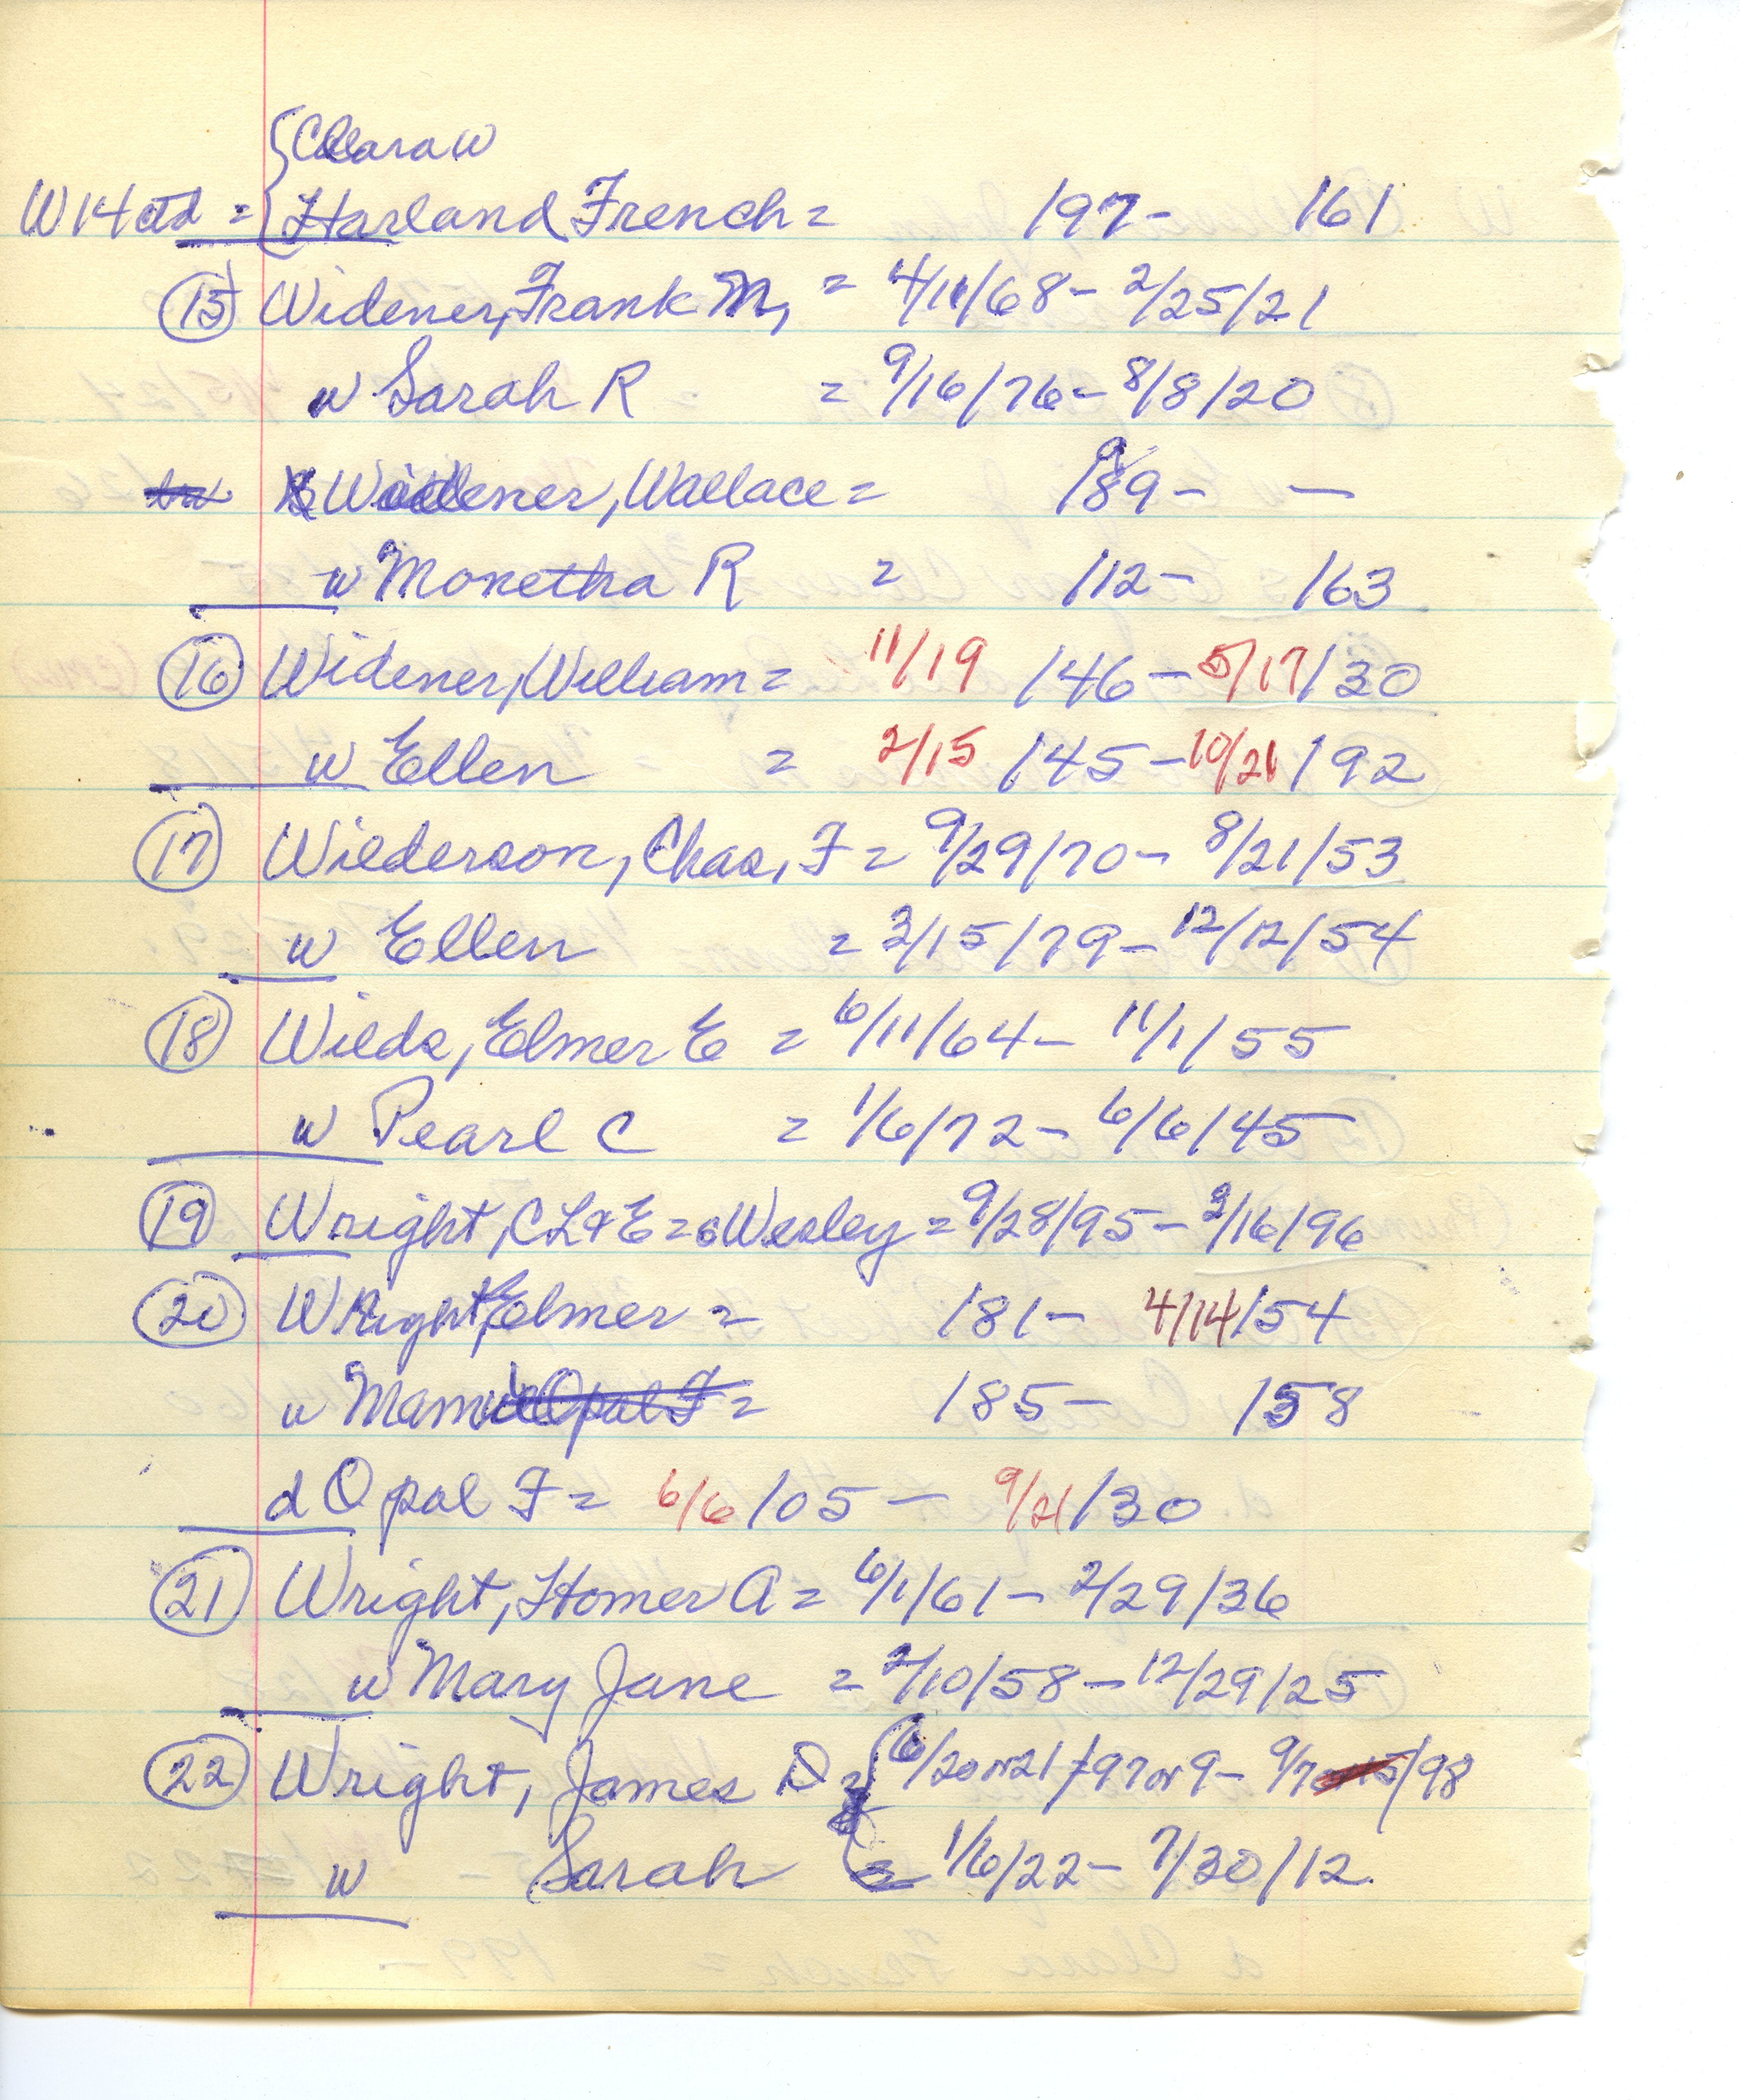 Clara w
W 14 ctd = Harland French = /97- /61
15 Widener, Frank M, = 4/11/68- 2/25/21
w Sarah R = 9/16/76- 8/8/20
Widener, Wallace = /89- —
w Monetha R = /12- /63
16 Widener, William = 11/19 /46- 5/17/30
w Ellen = 2/15 /45- 10/21/92
17 Wilderson, Chas, F = 9/29/70- 8/21/53
w Ellen = 2/15/79- 12/12/54
18 Wilds, Elmer E = 6/11/64- 11/1/55
w Pearl C = 1/6/72- 6/6/45
19 Wright, CL & E = s Wesley = 9/28/95- 2/16/96
20 Wright, Elmer = /81- 4/14/54
w Mamie Opal F = /85- /58
d Opal F = 6/6/05 - 9/21/30
21 Wright, Homer A = 6/1/61- 2/29/36
w Mary Jane = 2/10/58- 12/29/25
22 Wright, James D = 6/20 or 21/97 or 9- 9/7 or 15/98
w Sarah = 1/6/22- 7/30/12.